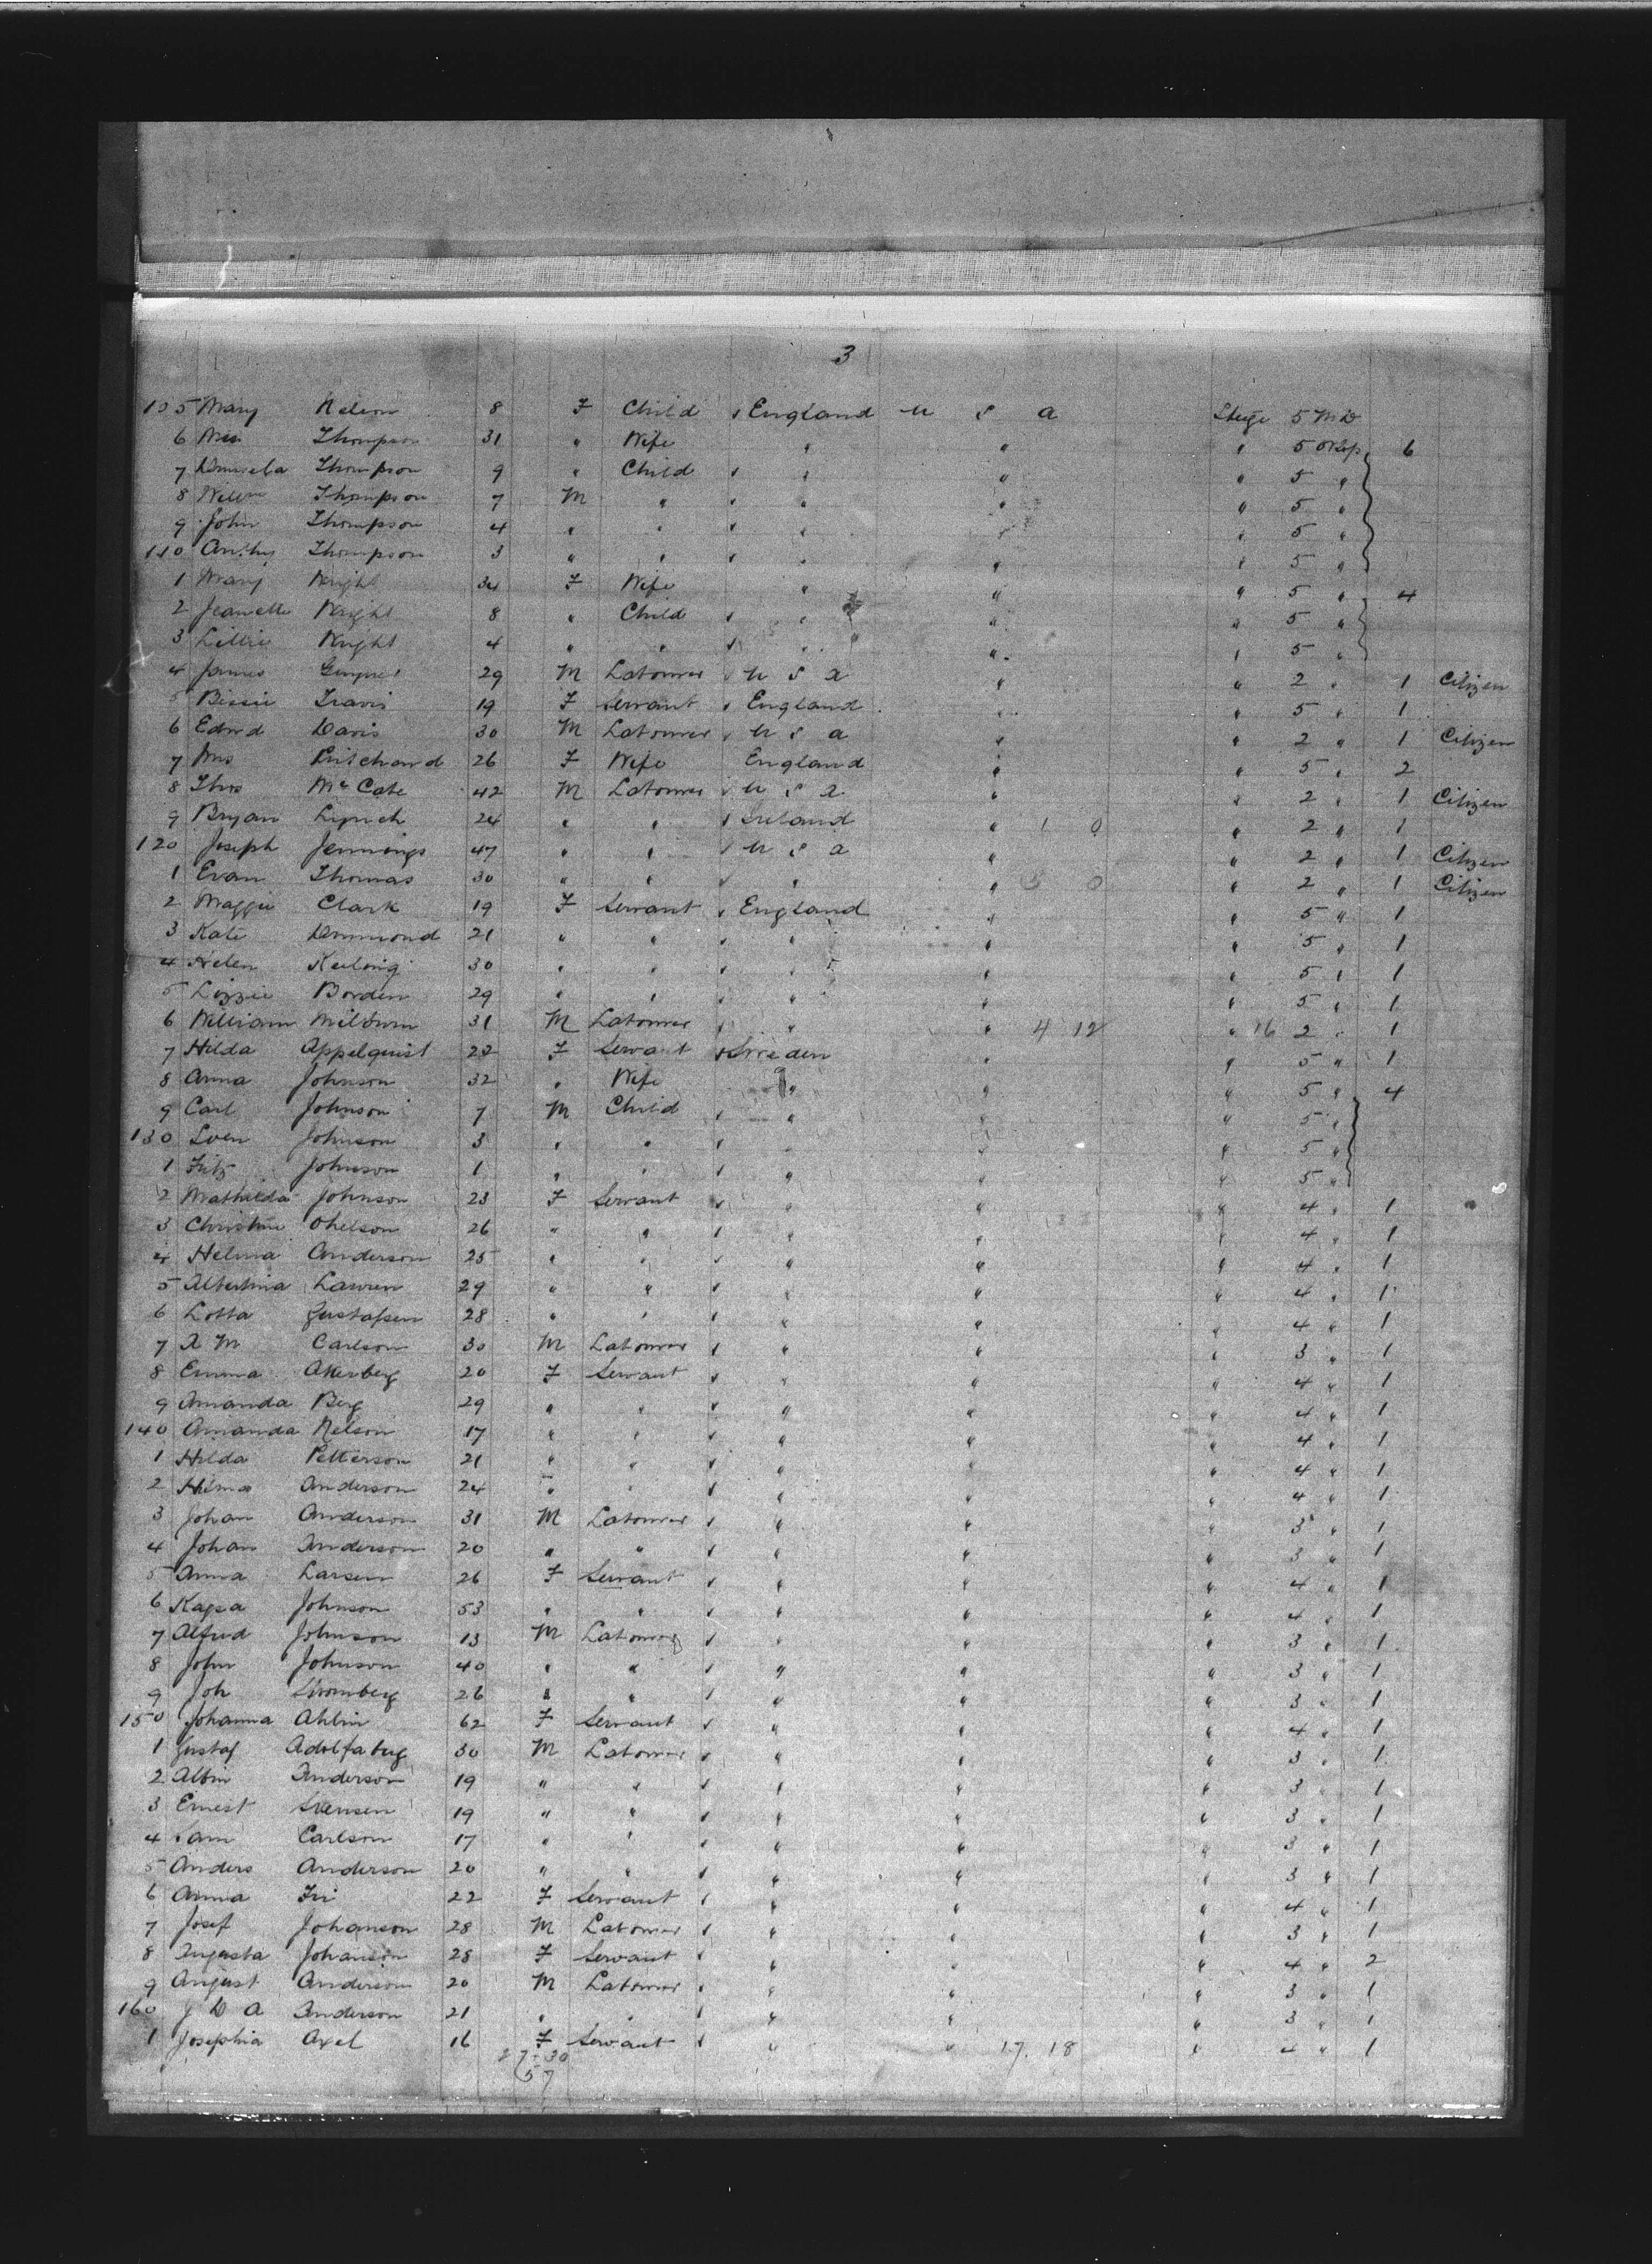 3
105 Mary Nelson 8 F Child England U S A Stuge 5 Mid
6 Mrs Thompson 31 " Wife " " " 5 6
7 Thompson 9 " Child " " " 5 "
8 Willm Thompson 7 M " " " " 5 "
9 John Thompson 4 " " " " " 5 "
110 Thompson 3 " " " " " 5 "
1 Mary Wright 34 F Wife " " " 5 " 4
2 Jeanette Wright 8 " Child " " " 5 "
3 Lillie Wright 4 " " " " " 5 "
4 James 29 M Labourer U S A " " 2 " 1 Citizen
5 Bessie Travis 19 F Servant England " " 5 " 1
6 Edwd Davis 30 M Labourer U S A " " 2 " 1 Citizen
7 Mrs Pritchard 26 F Wife England " " 5 " 2
8 Thos McCabe 42 M Labourer U S A " " 2 " 1 Citizen
9 Bryan Lynch 24 " " Ireland " 1 0 " 2 " 1
120 Joseph Jennings 47 " " U S A " " 2 " 1 Citizen
1 Evan Thomas 30 " " " " 5 0 " 2 " 1 Citizen
2 Maggie Clark 19 F Servant England " " 5 " 1
3 Kate 21 " " " " " 5 " 1
4 Helen 30 " " " " " 5 " 1
5 Lizzie Borden 29 " " " " " 5 " 1
6 William 31 M Labourer " " 4 12 " 16 2 " 1
7 Hilda Appelquist 22 F Servant Sweden " " 5 " 1
8 Anna Johnson 32 " Wife " " " 5 " 4
9 Carl Johnson 7 M Child " " " 5 "
130 Sven Johnson 3 " " " " " 5 "
1 Fritz Johnson 1 " " " " " 5 "
2 Mathilda Johnson 23 F Servant " " " 4 " 1
3 Christine Ohelson 26 " " " " " 4 " 1
4 Helma Anderson 25 " " " " " 4 " 1
5 Albertina Lawren 29 " " " " " 4 " 1
6 Lotta Gustafsen 28 " " " " " 4 " 1
7 A M Carlson 30 M Labourer " " " 3 " 1
8 Emma Akerberg 20 F Servant " " " 4 " 1
9 Amanda Berg 29 " " " " " 4 " 1
140 Amanda Nelson 17 " " " " " 4 " 1
1 Hilda Petterson 21 " " " " " 4 " 1
2 Hilma Anderson 24 " " " " " 4 " 1
3 Johan Anderson 31 M Labourer " " " 3 " 1
4 Johan Anderson 20 " " " " " 3 " 1
5 Anna Larsen 26 F Servant " " " 4 " 1
6 Kajsa Johnson 53 " " " " " 4 " 1
7 Alfred Johnson 13 M Labourer " " " 3 " 1
8 John Johnson 40 " " " " " 3 " 1
9 Joh Stromberg 26 " " " " " 3 " 1
150 Johanna Ahlin 62 F Servant " " " 4 " 1
1 Gustaf Adolfaberg 30 M Labourer " " " 3 " 1
2 Albin Anderson 19 " " " " " 3 " 1
3 Ernest Svensen 19 " " " " " 3 " 1
4 Sam Carlson 17 " " " " " 3 " 1
5 Anders Anderson 20 " " " " " 3 " 1
6 Anna Fri 22 F Servant " " " 4 " 1
7 Josef Johanson 28 M Labourer " " " 3 " 1
8 Augusta Johanson 28 F Servant " " " 4 " 2
9 August Anderson 20 M Labourer " " " 3 " 1
160 J D A Anderson 21 " " " " " 3 " 1
1 Josephia Axel 16 F Servant " " 17. 18 " 4 " 1
27 + 30
57